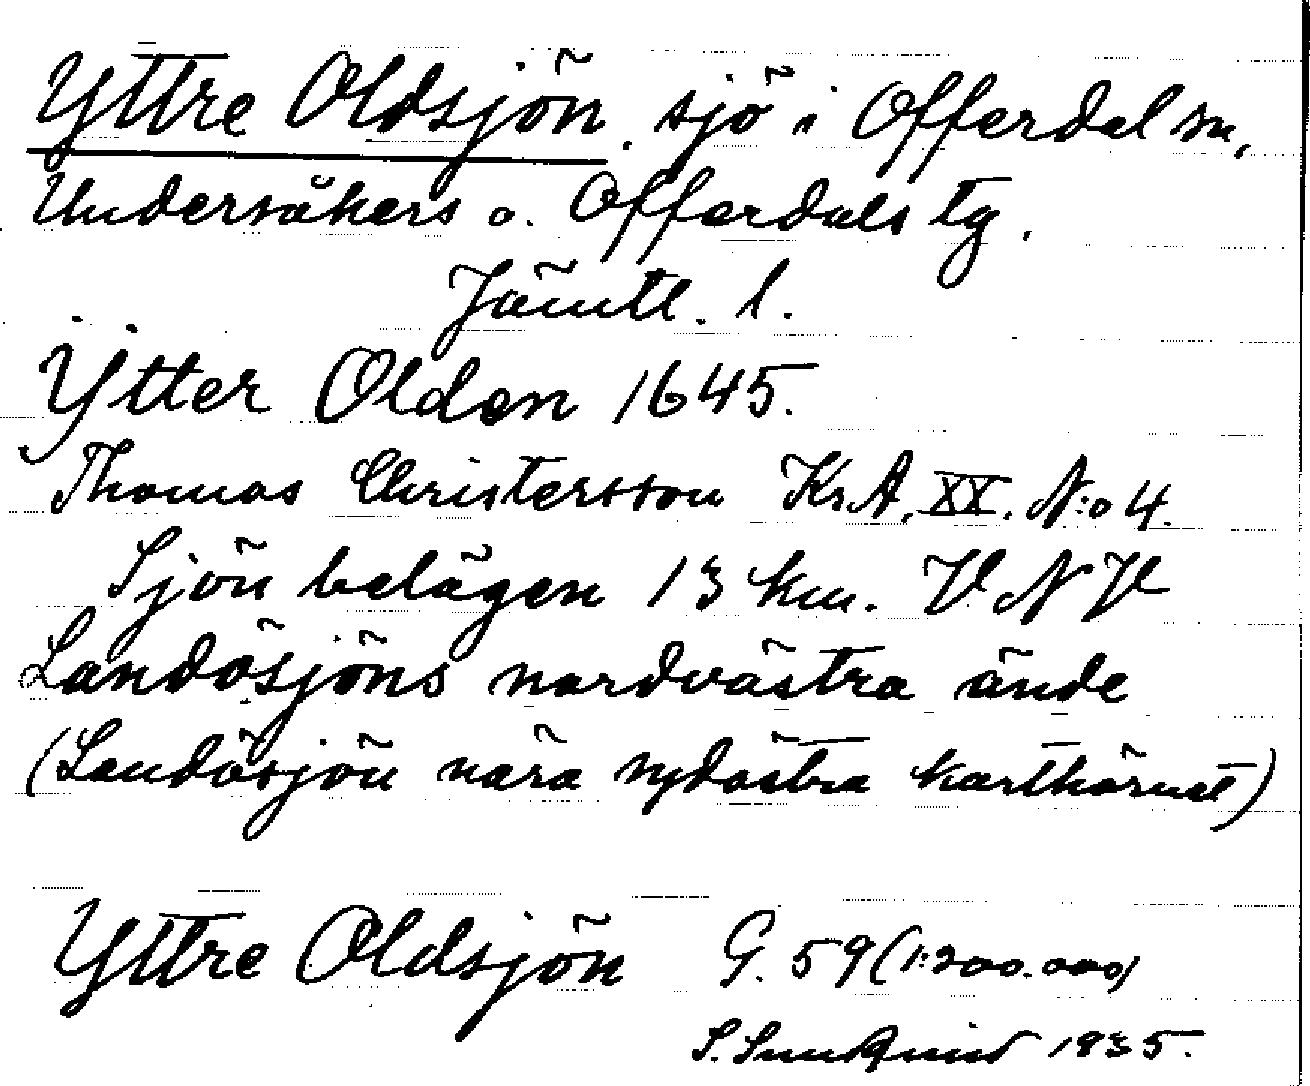 Yttre Oldsjön, sjö i Offerdal sn,
Undersåkers o. Offerdals tg.
Jämtl. l.
Ytter Olden 1645.
Thomas Christersson Kr.A. XX. N:o 4.
Sjön belägen 13 km. VNV
Landösjöns nordvästra ände
(Landösjön nära sydöstra karthörnet)
Yttre Oldsjön G. 59 (1:200.000)
S. Sundquist 1935.